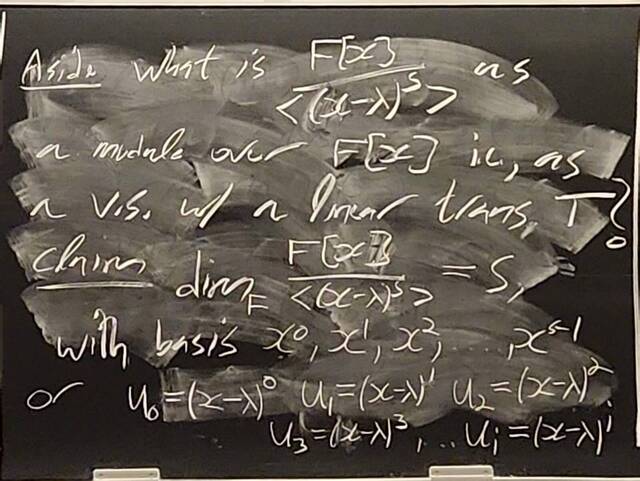 Aside what is F[x] / <(x-λ)^s> as
a module over F[x] i.e., as
a v.s. w/ a linear trans. T?
Claim dim_F F[x] / <(x-λ)^s> = s,
with basis x^0, x^1, x^2, ..., x^{s-1}
or u_0=(x-λ)^0 u_1=(x-λ)^1 u_2=(x-λ)^2
u_3=(x-λ)^3, ... u_i=(x-λ)^i